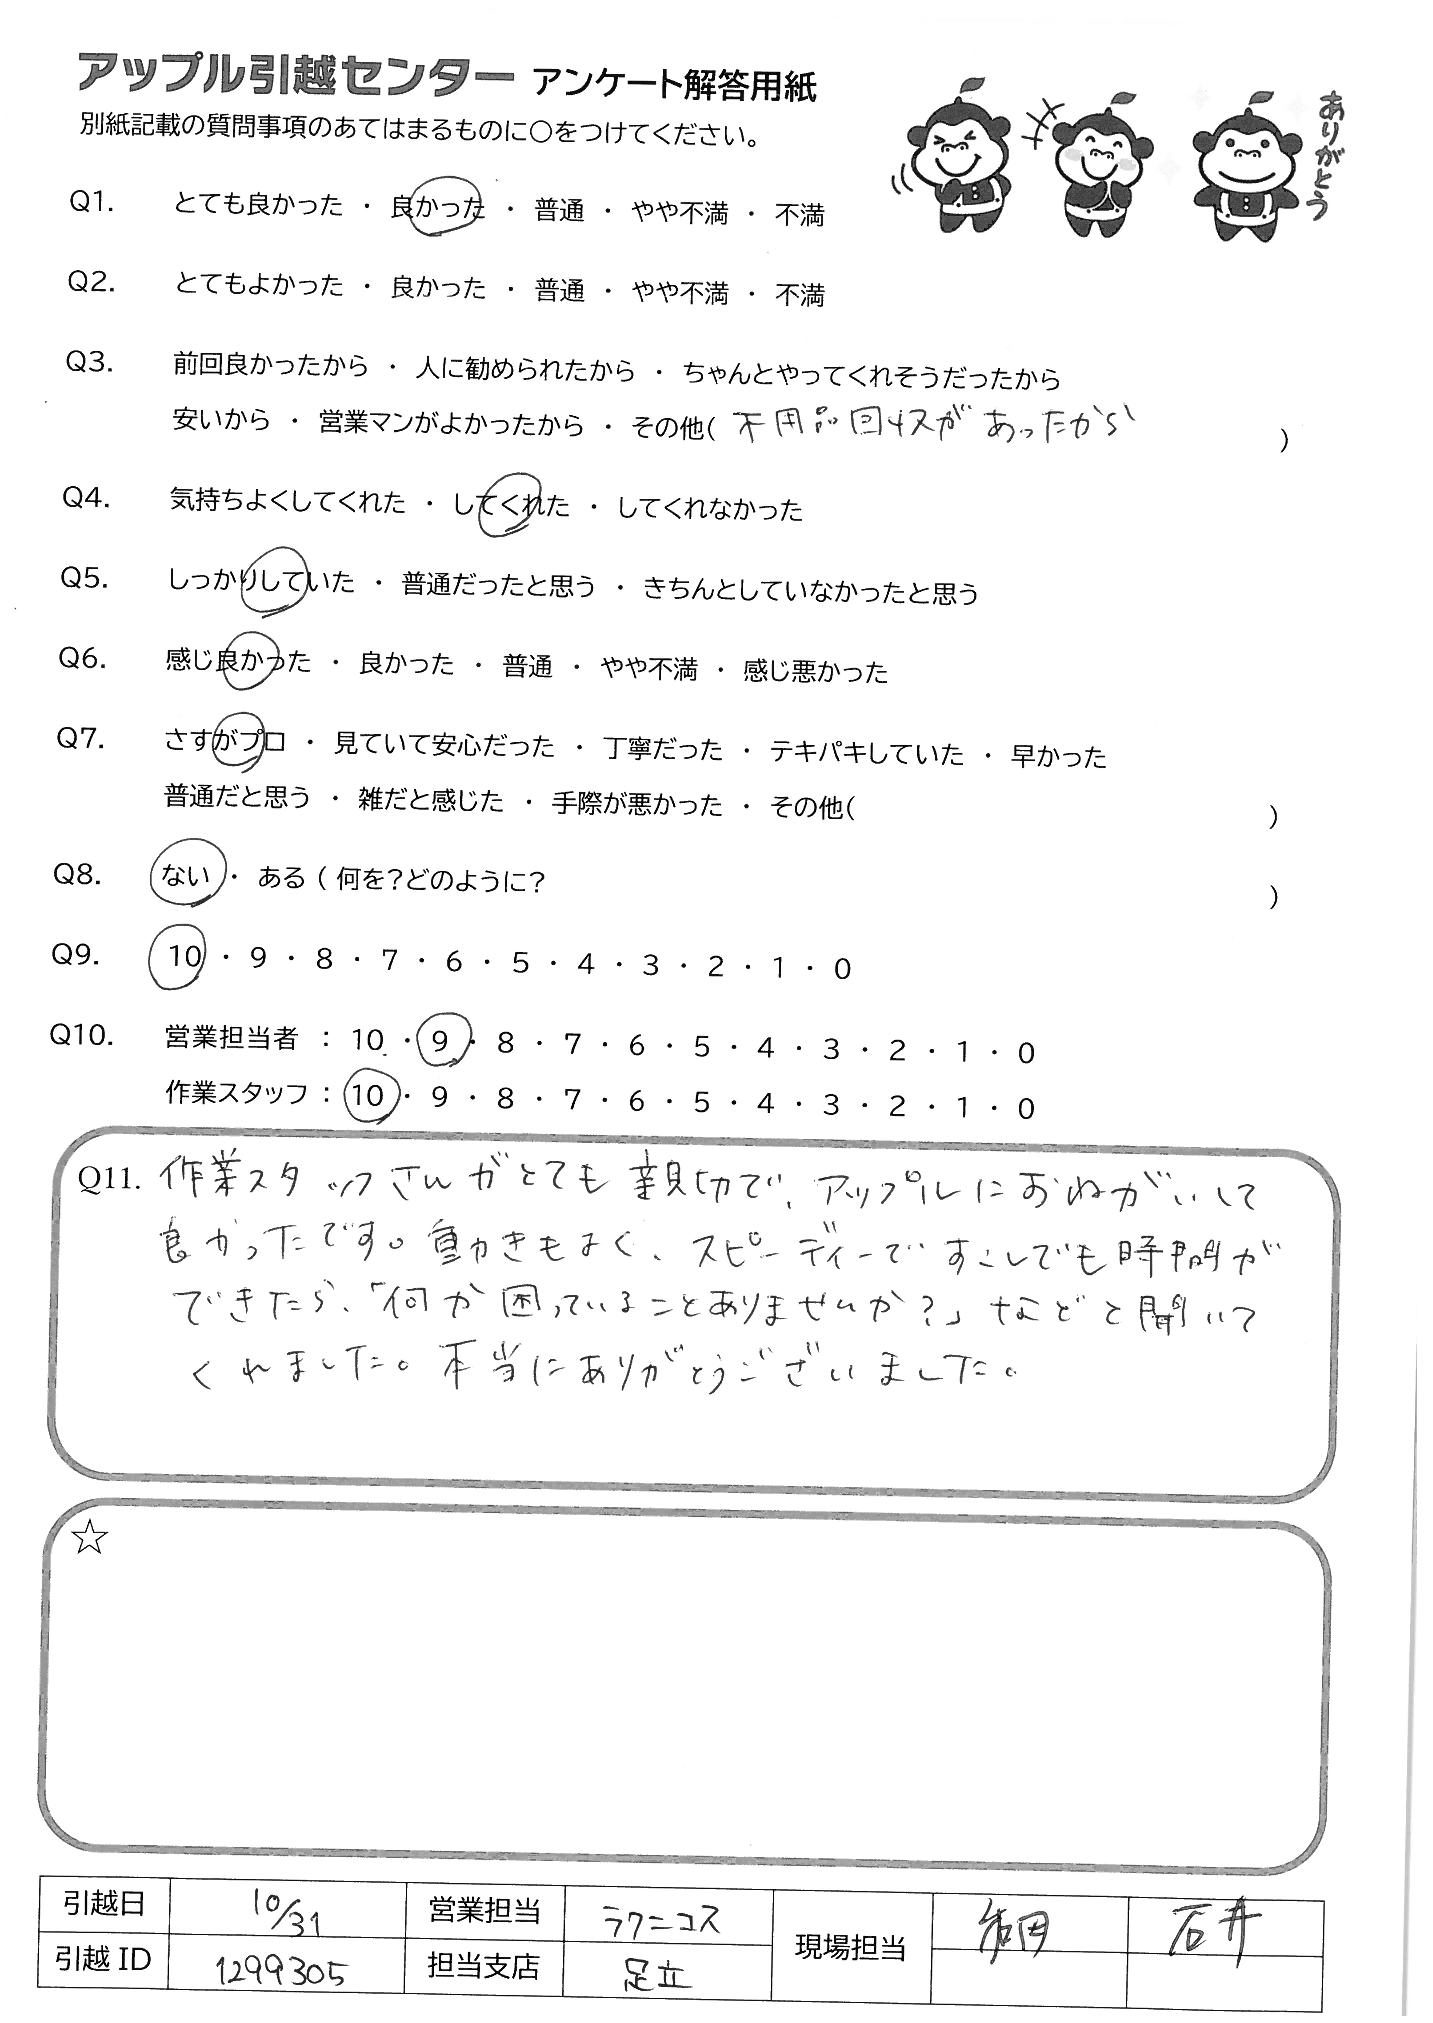 アップル引越センター アンケート解答用紙
ありがとう
別紙記載の質問事項のあてはまるものに○をつけてください。
Q1. とても良かった ・ 良かった ・ 普通 ・ やや不満 ・ 不満
Q2. とてもよかった ・ 良かった ・ 普通 ・ やや不満 ・ 不満
Q3. 前回良かったから ・ 人に勧められたから ・ ちゃんとやってくれそうだったから
安いから ・ 営業マンがよかったから ・ その他( 不用品回収があったから )
Q4. 気持ちよくしてくれた ・ してくれた ・ してくれなかった
Q5. しっかりしていた ・ 普通だったと思う ・ きちんとしていなかったと思う
Q6. 感じ良かった ・ 良かった ・ 普通 ・ やや不満 ・ 感じ悪かった
Q7. さすがプロ ・ 見ていて安心だった ・ 丁寧だった ・ テキパキしていた ・ 早かった
普通だと思う ・ 雑だと感じた ・ 手際が悪かった ・ その他( )
Q8. ない ・ ある ( 何を?どのように? )
Q9. 10 ・ 9 ・ 8 ・ 7 ・ 6 ・ 5 ・ 4 ・ 3 ・ 2 ・ 1 ・ 0
Q10. 営業担当者 : 10 ・ 9 ・ 8 ・ 7 ・ 6 ・ 5 ・ 4 ・ 3 ・ 2 ・ 1 ・ 0
作業スタッフ : 10 ・ 9 ・ 8 ・ 7 ・ 6 ・ 5 ・ 4 ・ 3 ・ 2 ・ 1 ・ 0
Q11. 作業スタッフさんがとても親切で、アップルにおねがいして
良かったです。動きもよく、スピーディーですこしでも時間が
できたら、「何か困っていることありませんか?」などと聞いて
くれました。本当にありがとうございました。
☆
引越日 10/31 営業担当 ラクニコス 現場担当 石井
引越 ID 1299305 担当支店 足立